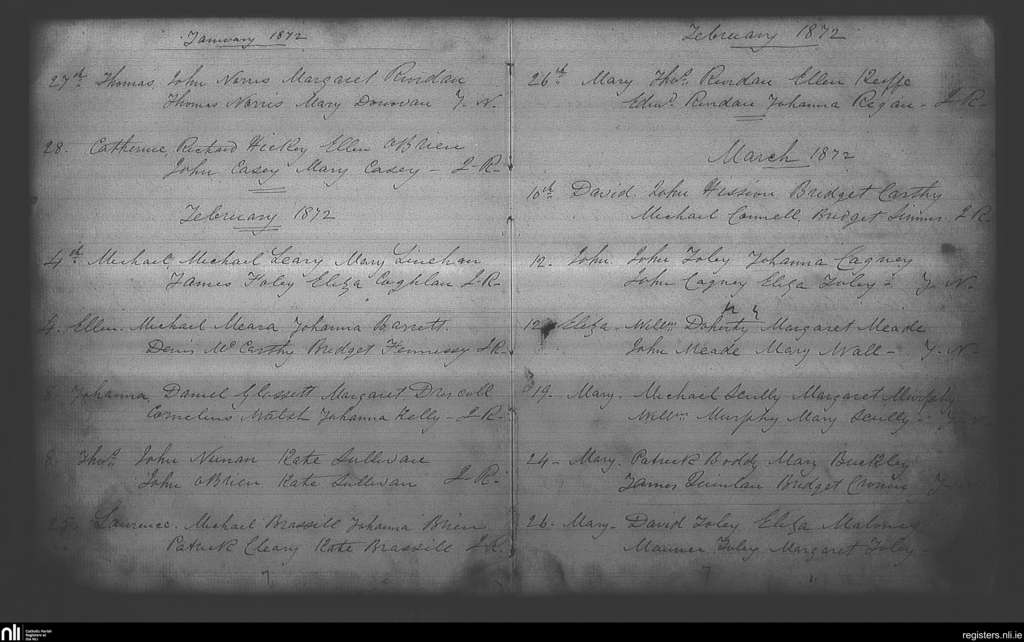 January 1872
27th Thomas John Norris Margaret Riordan
Thomas Norris Mary Donovan J. N.
28. Catherine, Richard Hickey Ellen OBrien
John Casey Mary Casey - J-R-
February 1872
4th Michael, Michael Leary Mary Linehan
James Foley Eliza Coghlan J-R-
4. Ellen. Michael Meara Johanna Barrett.
Denis McCarthy Bridget Hennessy J.R.
8 Johanna Daniel Glassett Margaret Driscoll
Cornelius Walsh Johanna Kelly - J-R-
8. Thos. John Nunan Kate Sullivan
John OBrien Kate Sullivan J-R-
25. Laurence. Michael Brassill Johanna Brien
Patrick Cleary Kate Brassill J.R.
February 1872
26th Mary Thos. Riordan Ellen Keeffe
Edwd. Riordan Johanna Regan - J-R-
March 1872
10th David. John Hession Bridget Carthy
Michael Connell, Bridget J R
12. John. John Foley Johanna Cagney
John Cagney Eliza Foley - J. N.
12 Eliza. Willm. Doherty Margaret Meade
John Meade Mary Wall - J. N.
19. Mary. Michael Scully Margaret Murphy
Willm. Murphy Mary Scully -
24 - Mary. Patrick Boddy Mary Buckley
James Quinlan Bridget Cronin J
26. Mary - David Foley Eliza Maloney
Foley Margaret Foley -
nli
Catholic Parish
Registers at
the NLI
registers.nli.ie